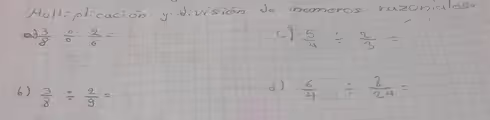 Multiplicación y división de numeros razonales
a) 3/8 ÷ 2/6 =
c) 5/4 ÷ 2/3 =
b) 3/8 ÷ 2/9 =
d) 6/4 ÷ 8/24 =